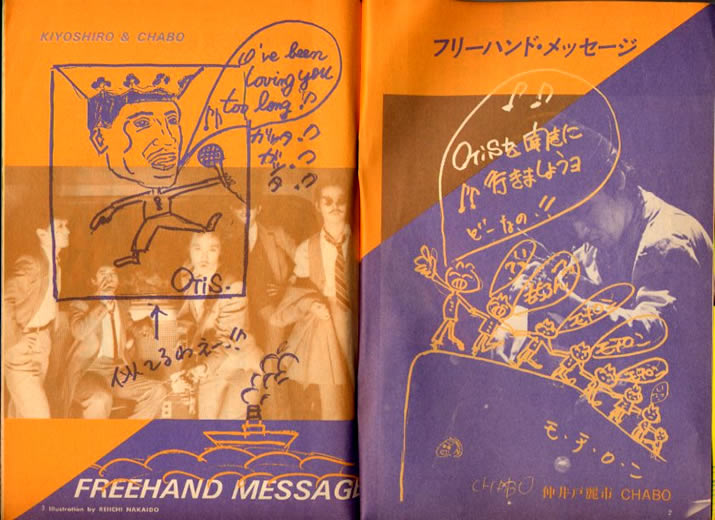 KIYOSHIRO & CHABO
I've been
loving you
too long!
ガッタ
ガッ
タ
OTiS.
↑
似てるわえー!!
FREEHAND MESSAGE
3 Illustration by REIICHI NAKAIDO
フリーハンド・メッセージ
OTiSを聞きに
行きましょうョ
どーなの!!
モチロン
モチロン
モチロン
モ・チ・ロ・ン
CHABO
仲井戸麗市 CHABO
2